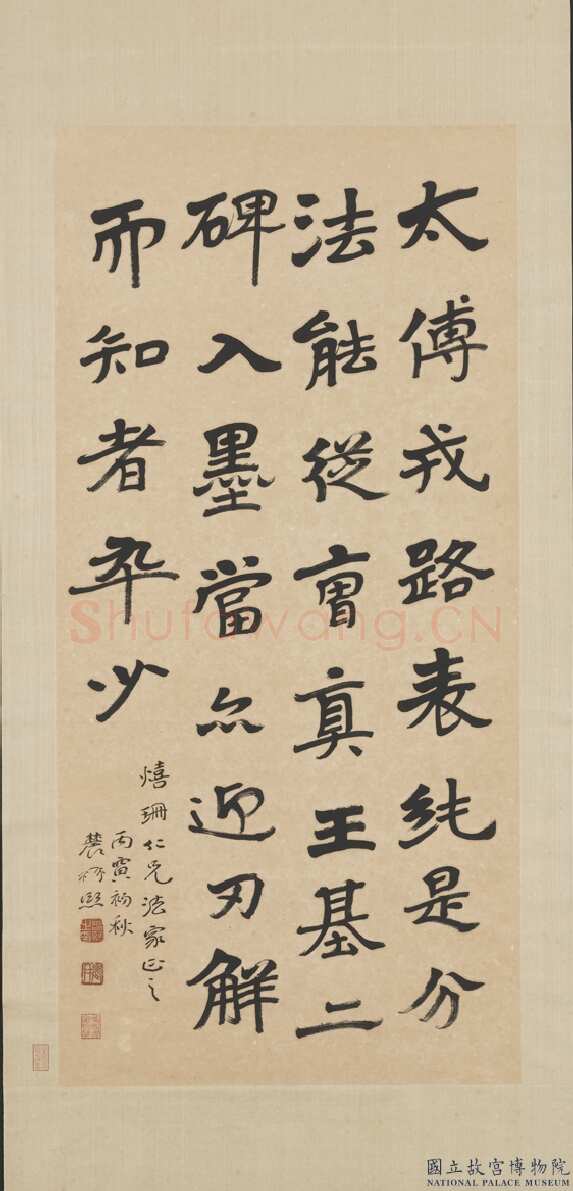 太傅戎路表純是分
法能從曹真王基二
碑入墨當尒迎刃解
而知者卒少
熺珊仁兄法家正之
丙寅初秋
農髯熙
Shufawang.CN
國立故宮博物院
NATIONAL PALACE MUSEUM